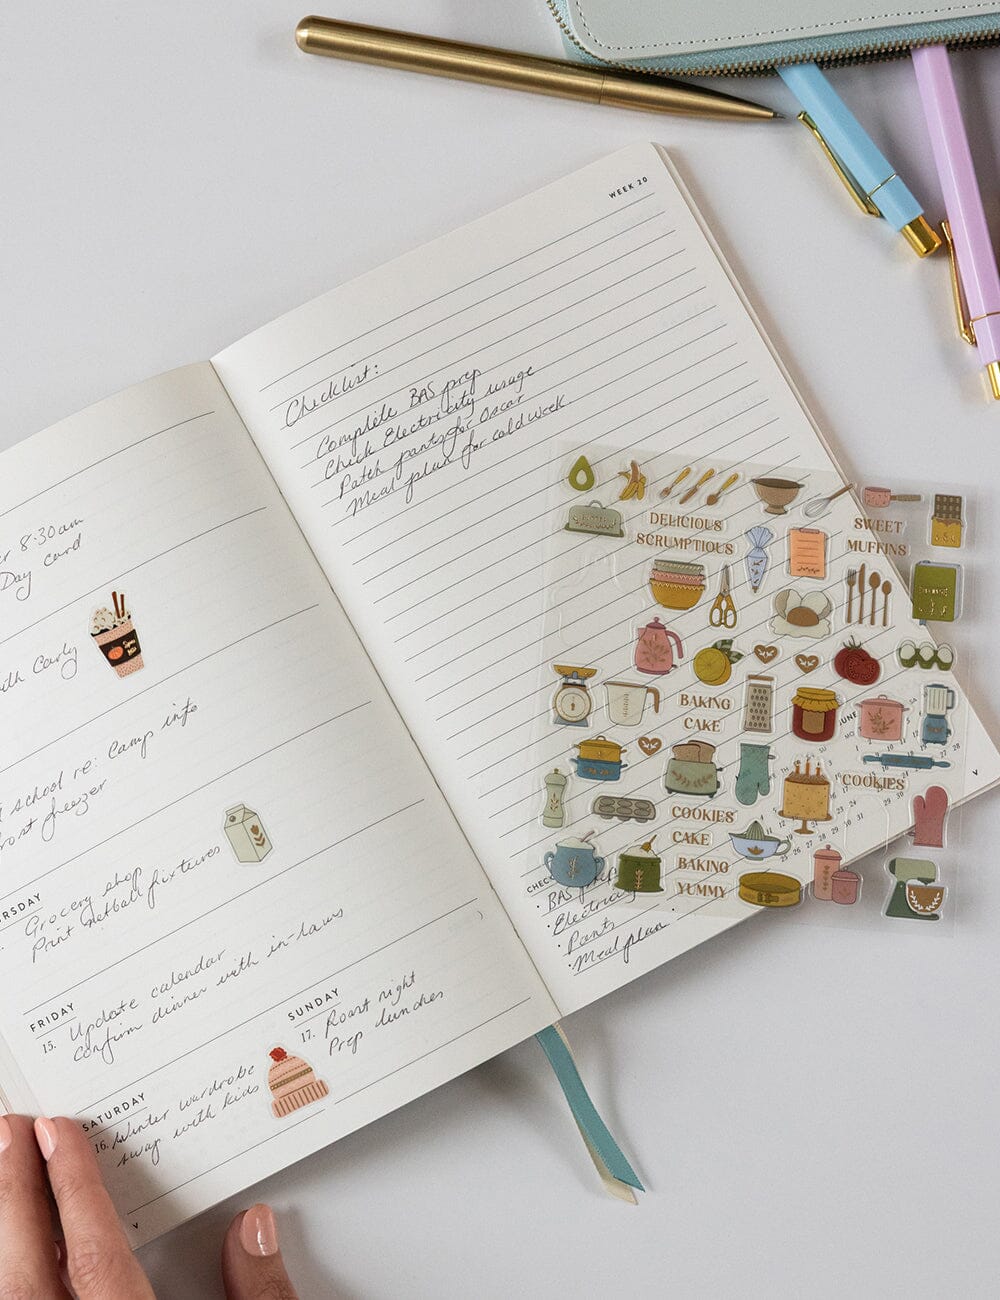 er 8:30am
Day card
with Carly
school re: Camp info
freezer
Grocery shop
Print netball fixtures
FRIDAY
15. Update calendar
Confirm dinner with in-laws
SATURDAY
16. Winter wardrobe
swap with kids
SUNDAY
17. Roast night
Prep lunches
V
WEEK 20
Checklist:
Complete BAS prep
Check Electricity usage
Patch pants for Oscar
Meal plan for cold week
DELICIOUS
SCRUMPTIOUS
SWEET
MUFFINS
BAKING
CAKE
COOKIES
COOKIES
CAKE
BAKING
YUMMY
JUNE
· BAS prep
· Electricity
· Pants
· Meal plan
V